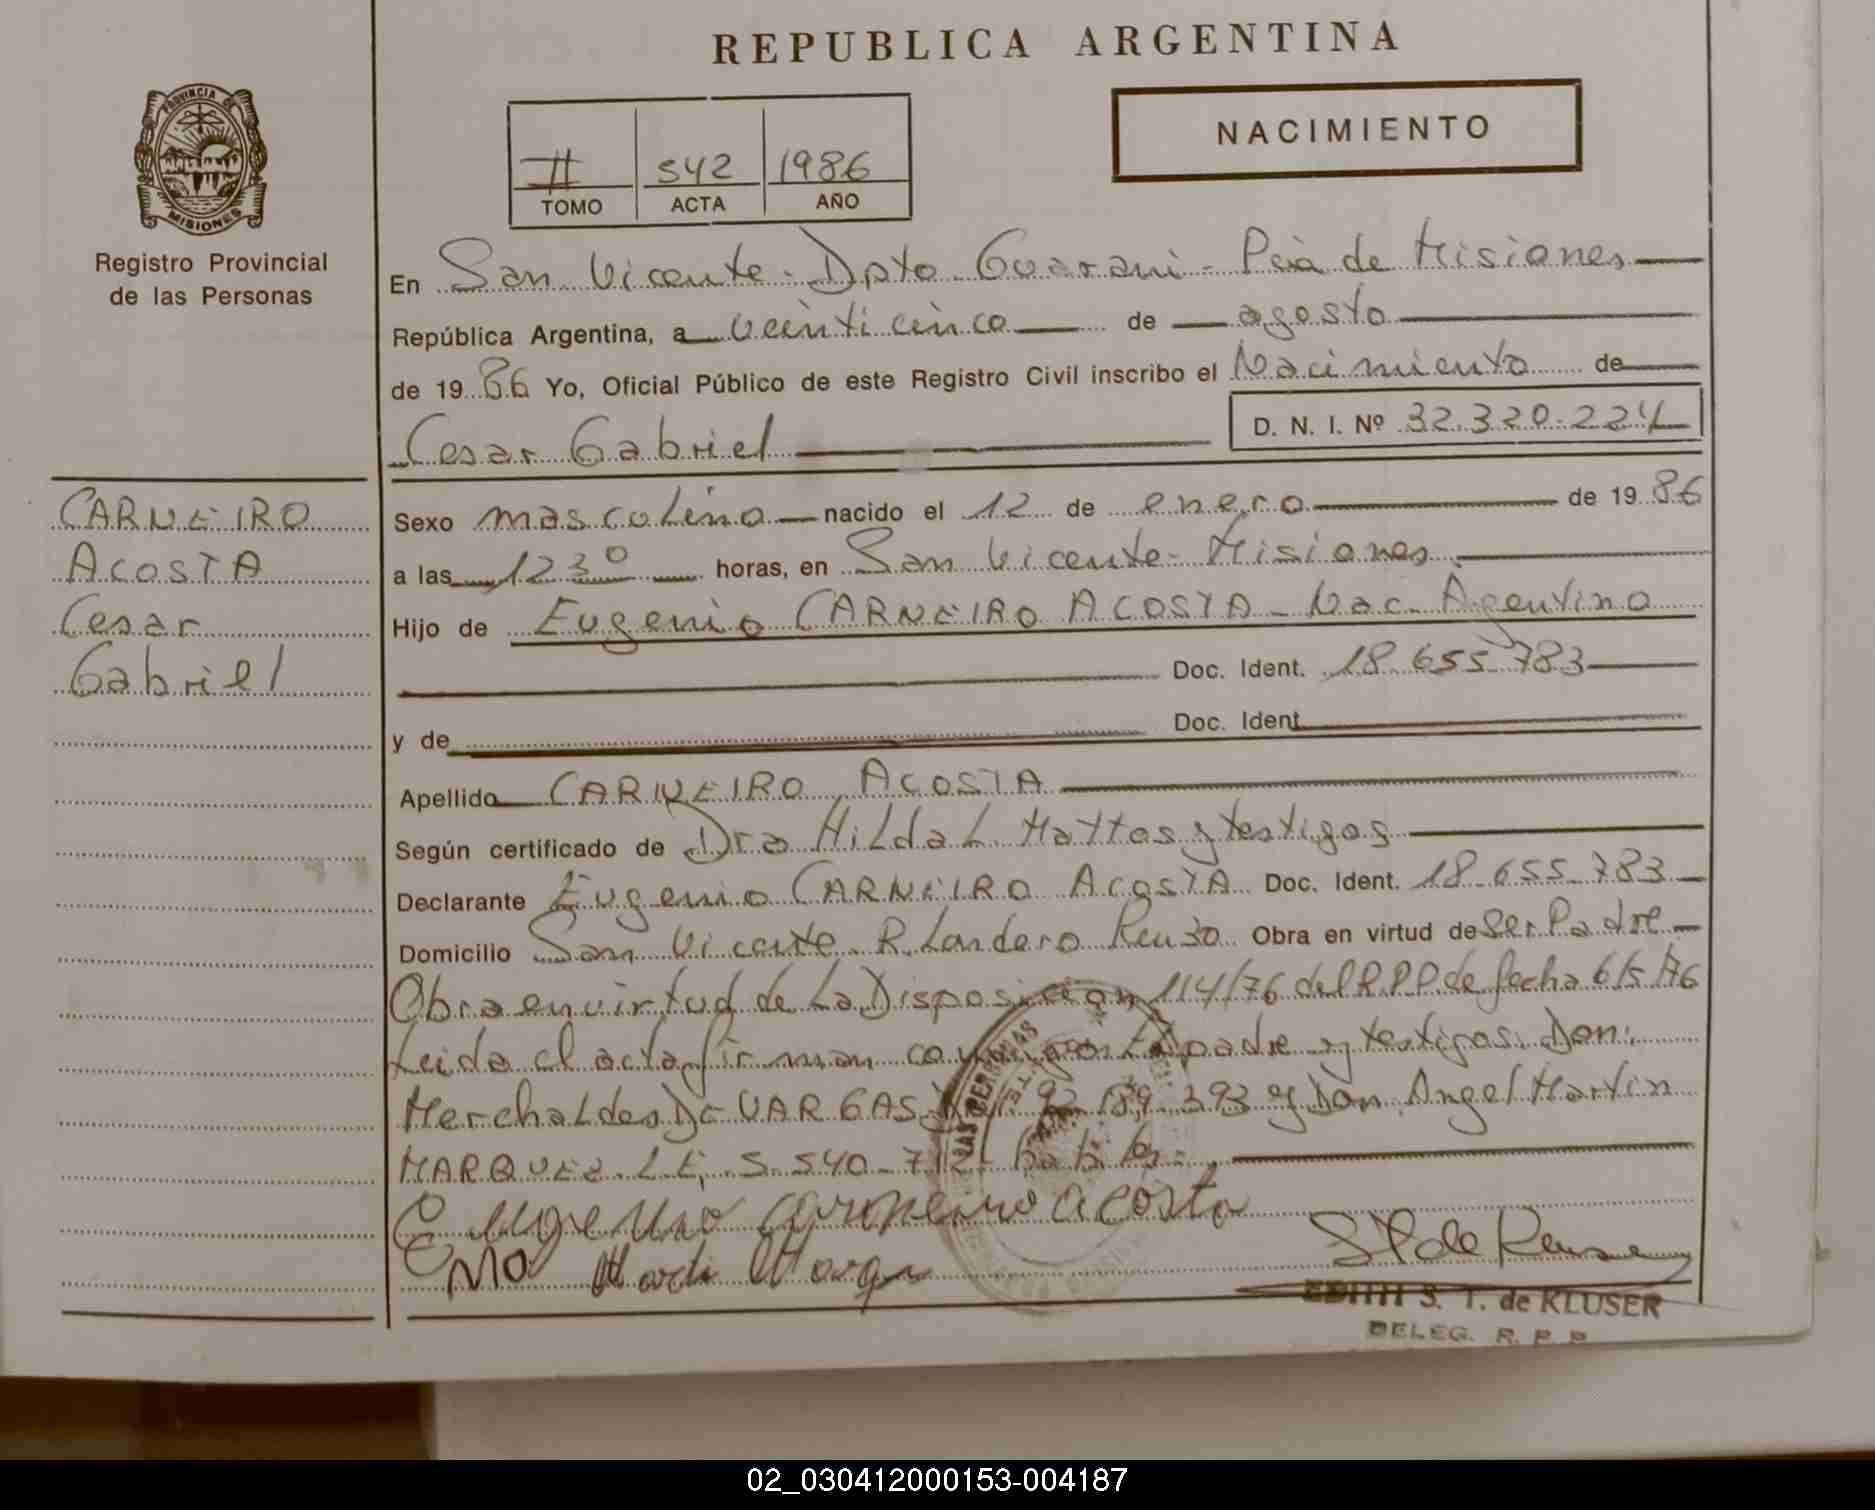 REPUBLICA ARGENTINA
PROVINCIA DE
MISIONES
Registro Provincial
de las Personas
II 542 1986
TOMO ACTA AÑO
NACIMIENTO
En San Vicente - Dpto Guarani - Pcia de Misiones
República Argentina, a veinticinco de agosto
de 1986 Yo, Oficial Público de este Registro Civil inscribo el Nacimiento de
Cesar Gabriel
D. N. I. Nº 32.320.224
CARNEIRO
ACOSTA
Cesar
Gabriel
Sexo masculino nacido el 12 de enero de 1986
a las 12 30 horas, en San Vicente - Misiones
Hijo de Eugenio CARNEIRO ACOSTA - Nac. Argentino
Doc. Ident. 18.655.783
y de Doc. Ident.
Apellido CARNEIRO ACOSTA
Según certificado de Dra Hilda L. Mattos y testigos
Declarante Eugenio CARNEIRO ACOSTA Doc. Ident. 18.655.783
Domicilio San Vicente R. Landero Obra en virtud de Ser Padre
Obra en virtud de La Disposicion 114/76 del R.P.P de fecha 6/5/76
Leida el acta firman conmigo el padre y testigos: Don:
VARGAS 393 y Don Angel Martin
MARQUEZ L.E. 5.540.712
Eugenio Carneiro Acosta
EDITH S. T. de KLUSER
DELEG. R. P. P.
02_030412000153-004187